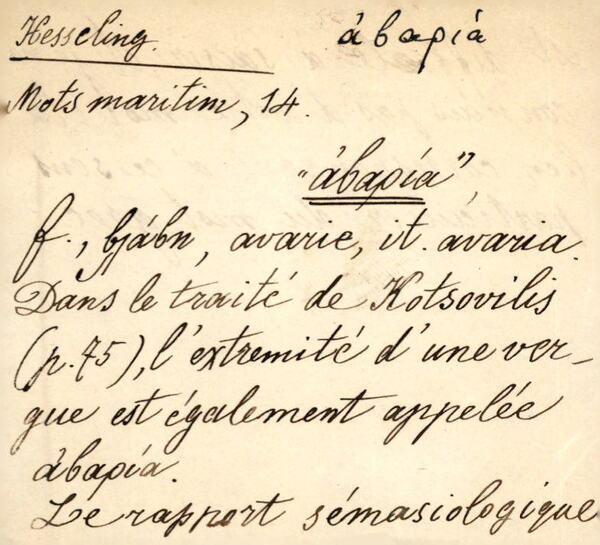 Hesseling. ἀβαριά
Mots maritim, 14.
"ἀβαρία",
f., βλάβη, avarie, it. avaria.
Dans le traité de Kotsovilis
(p. 75), l'extremité d'une ver-
gue est également appelée
ἀβαρία.
Le rapport sémasiologique